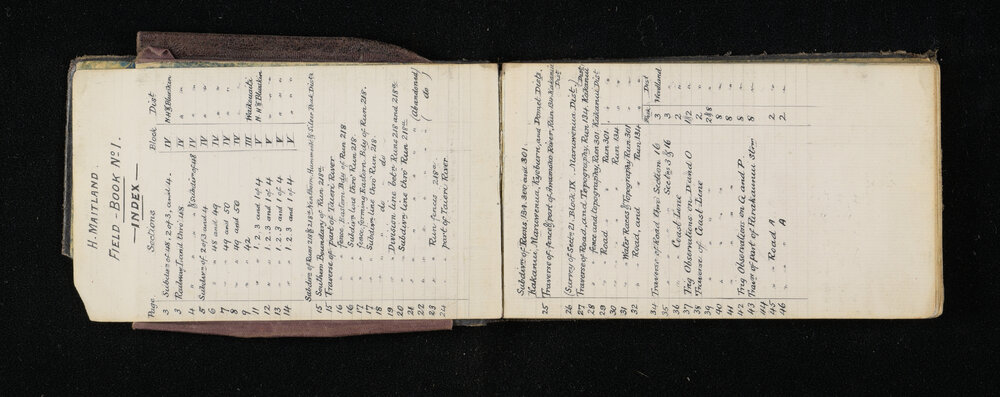 H. MAITLAND.
FIELD BOOK No 1.
—INDEX—
Page Sections Block Dist
3 Subdivn of 48, 2 of 3, and 4. IV N. H. & Blueskin
3 Railway Land thro' 48 IV "
4 " " " & Subdivn of 48 IV "
5 Subdivn of 2 of 3 and 4 IV "
6 " " 48 and 49 IV "
7 " " 49 and 50 IV "
8 " " 49 and 50 IV "
9 " " 42 III Waikouaiti
11 " " 1, 2, 3 and 1 of 4 V N. H. & Blueskin
12 " " 1, 2, 3 and 1 of 4 V "
13 " " 1, 2, 3 and 1 of 4 V "
14 " " 1, 2, 3 and 1 of 4 V "
15 Southern Boundary of Run 218a
15 Traverse of part of Taieri River
16 " " fence, Eastern Bdy of Run 218
16 " " Subdivn line thro' Run 218.
17 " " fence, forming Eastern Bdy of Run 218.
17 " " Subdivn line thro' Run 218.
18 " " do do
19 " " Division line betwn Runs 218 and 218a
20 " " Subdivn line thro' Run 218a
21 " " " " " "
22 " " " " " " (Abandoned)
23 " " Run fence 218a ( do )
24 " " part of Taieri River
Subdivn of Runs 134, 300 and 301.
Kakanui, Maruwenua, Kyeburn, and Domet Dists.
25 Traverse of fence & part of Anamoko River, Run 134 Kakanui Dist
26 Survey of Sectn 21. Block IX. Maruwenua Dist.
27 Traverse of Road, and Topography, Run 134 Kakanui Dist
28 " " fence and topography, Run 301 Kakanui Dist
29 " " Road Run 301
30 " " " Run 134
31 " " Water Races & Topography Run 301
32 " " Road, and " Run 134
Block Dist
34 Traverse of Road thro' Section 16 3 Woodland
35 " " " " Sectns 3 & 16 3 "
36 " " Coast Line 2 "
37 Trig Observations on D and O 1 & 2 "
38 Traverse of Coast Line 2 "
39 " " " " 2 & 8 "
40 " " " " 8 "
41 " " " " 8 "
42 Trig Observations on Q, and P 8 "
43 Travse of part of Parakaunui Strm "
44 " " " "
45 " " Road A 2 "
46 " " " A 2 "